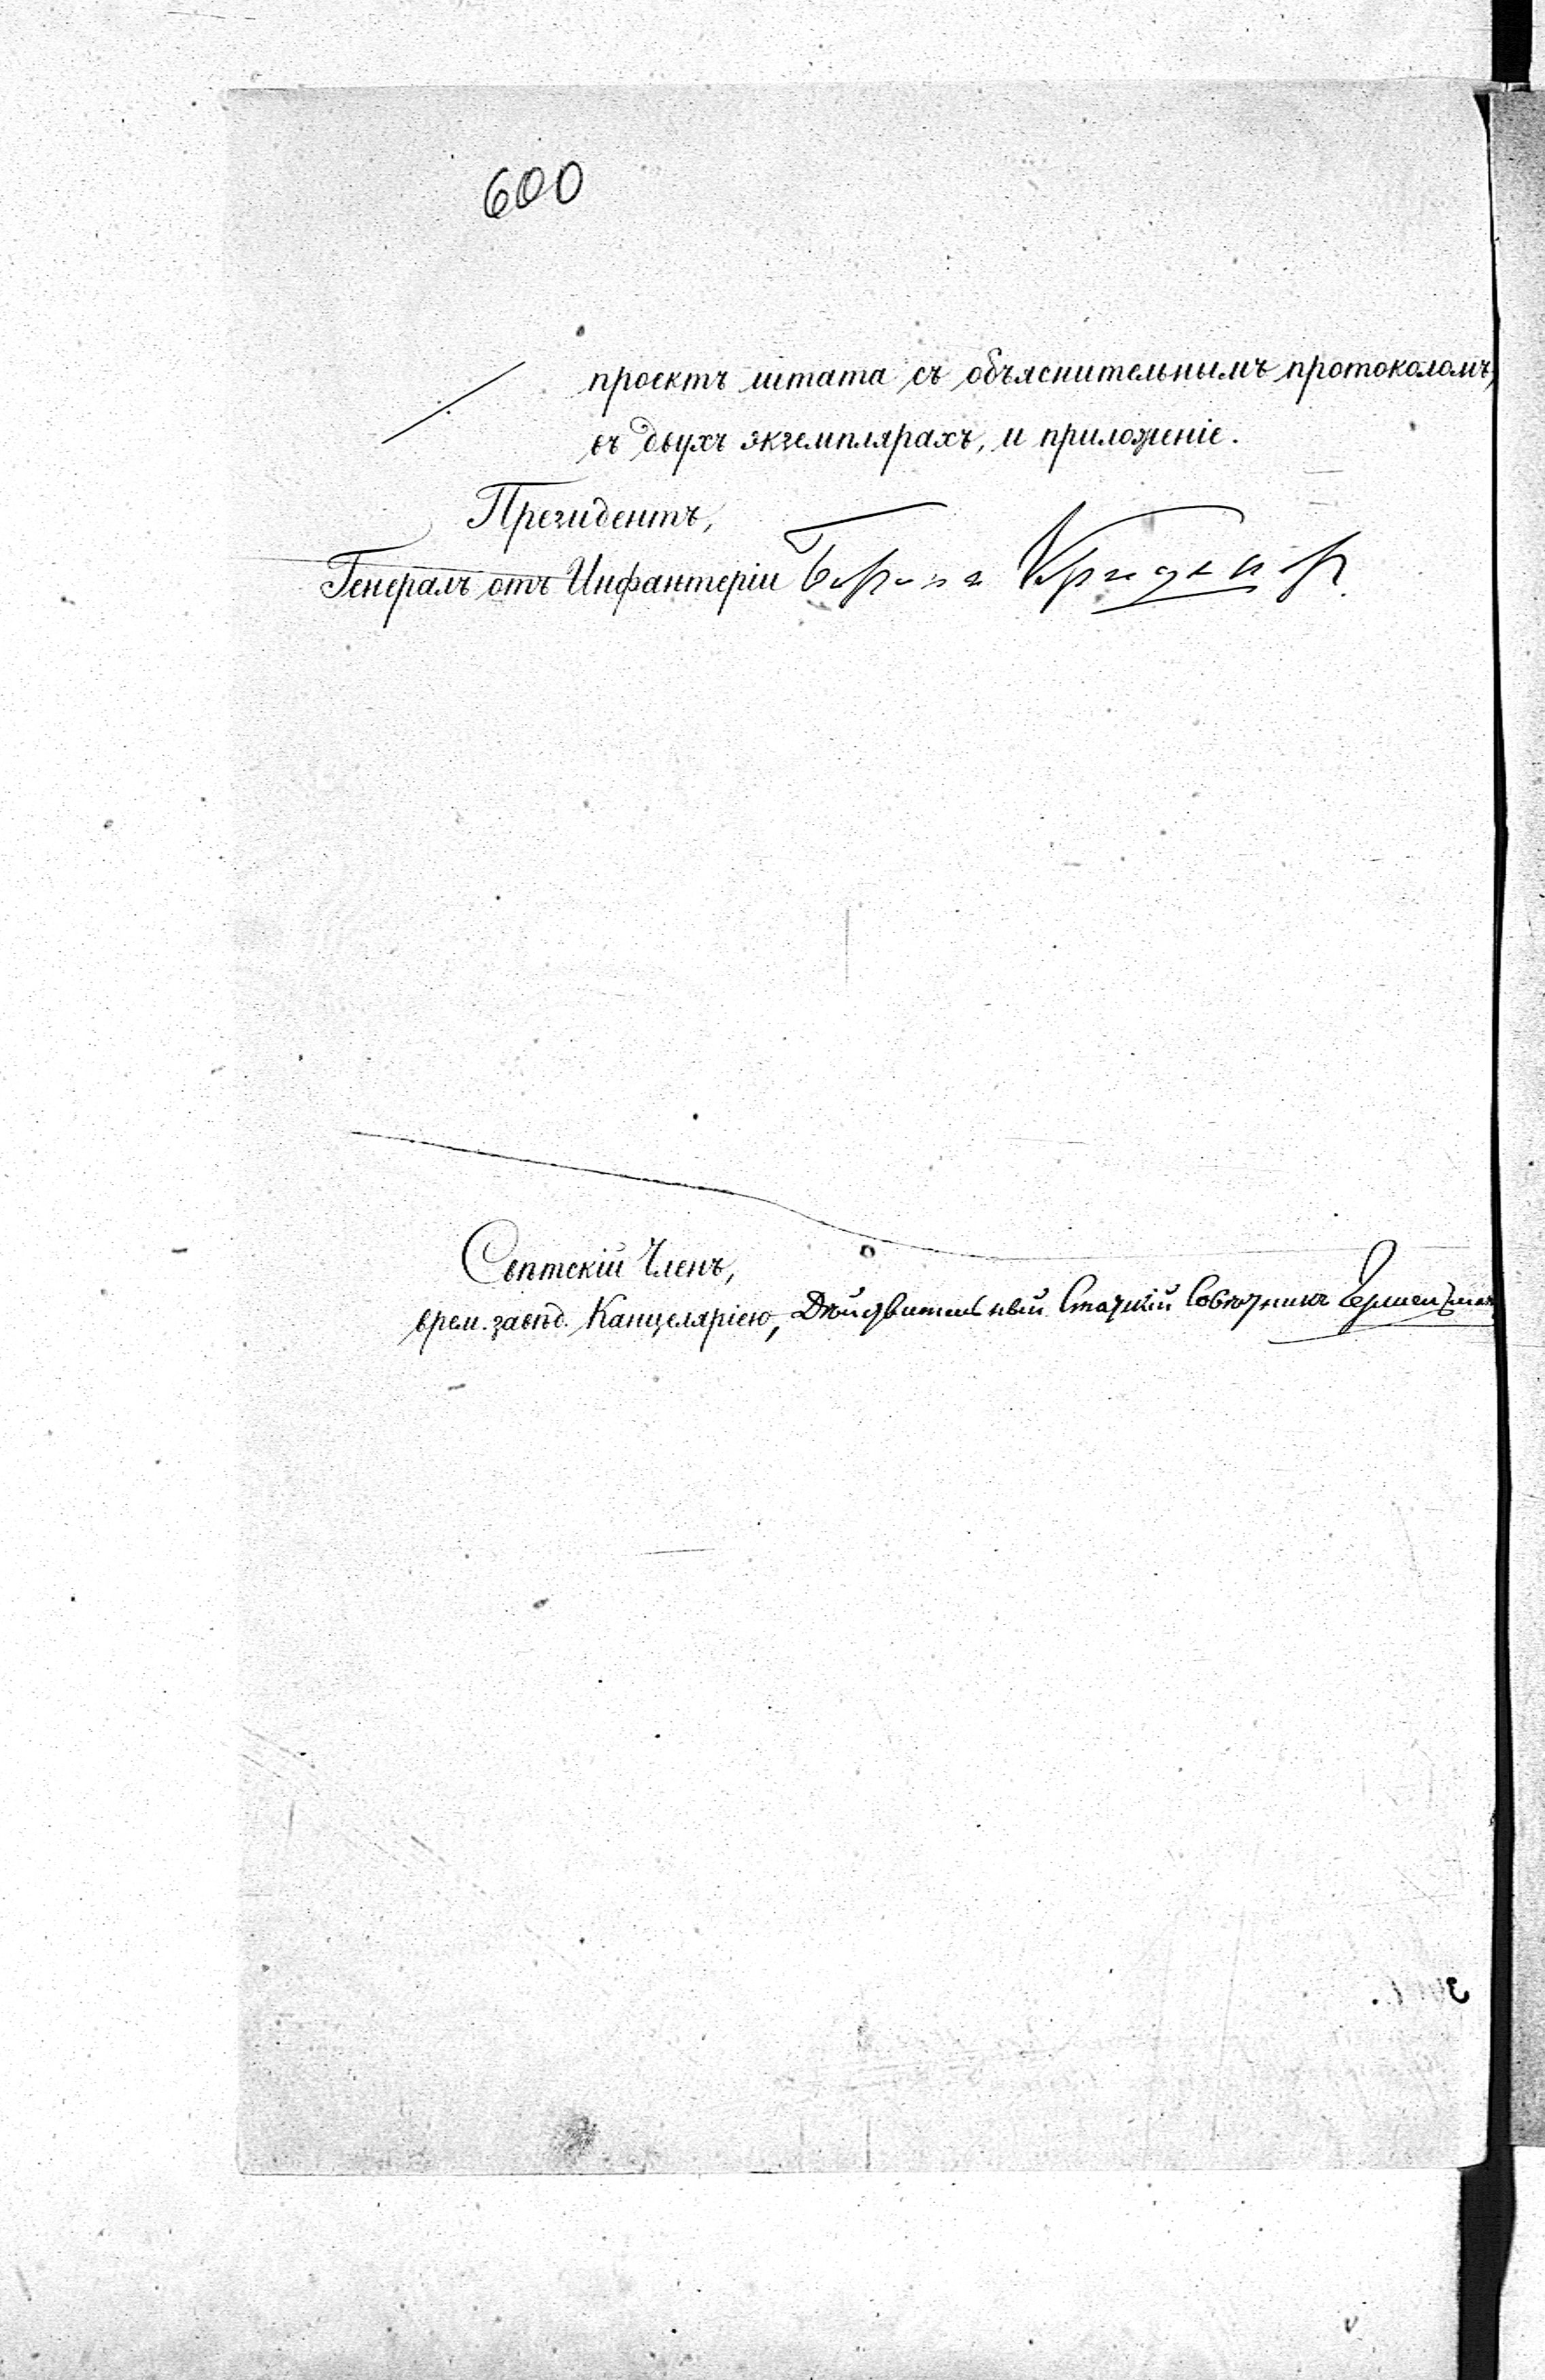 600
проектъ штата съ объяснительнымъ протоколомъ,
въ двухъ экземплярахъ, и приложеніе.
Президентъ,
Генералъ отъ Инфантеріи Баронъ Криденеръ.
Свѣтскій Членъ,
врем. завѣд. Канцеляріею, Дѣйствительный Статскій Совѣтникъ